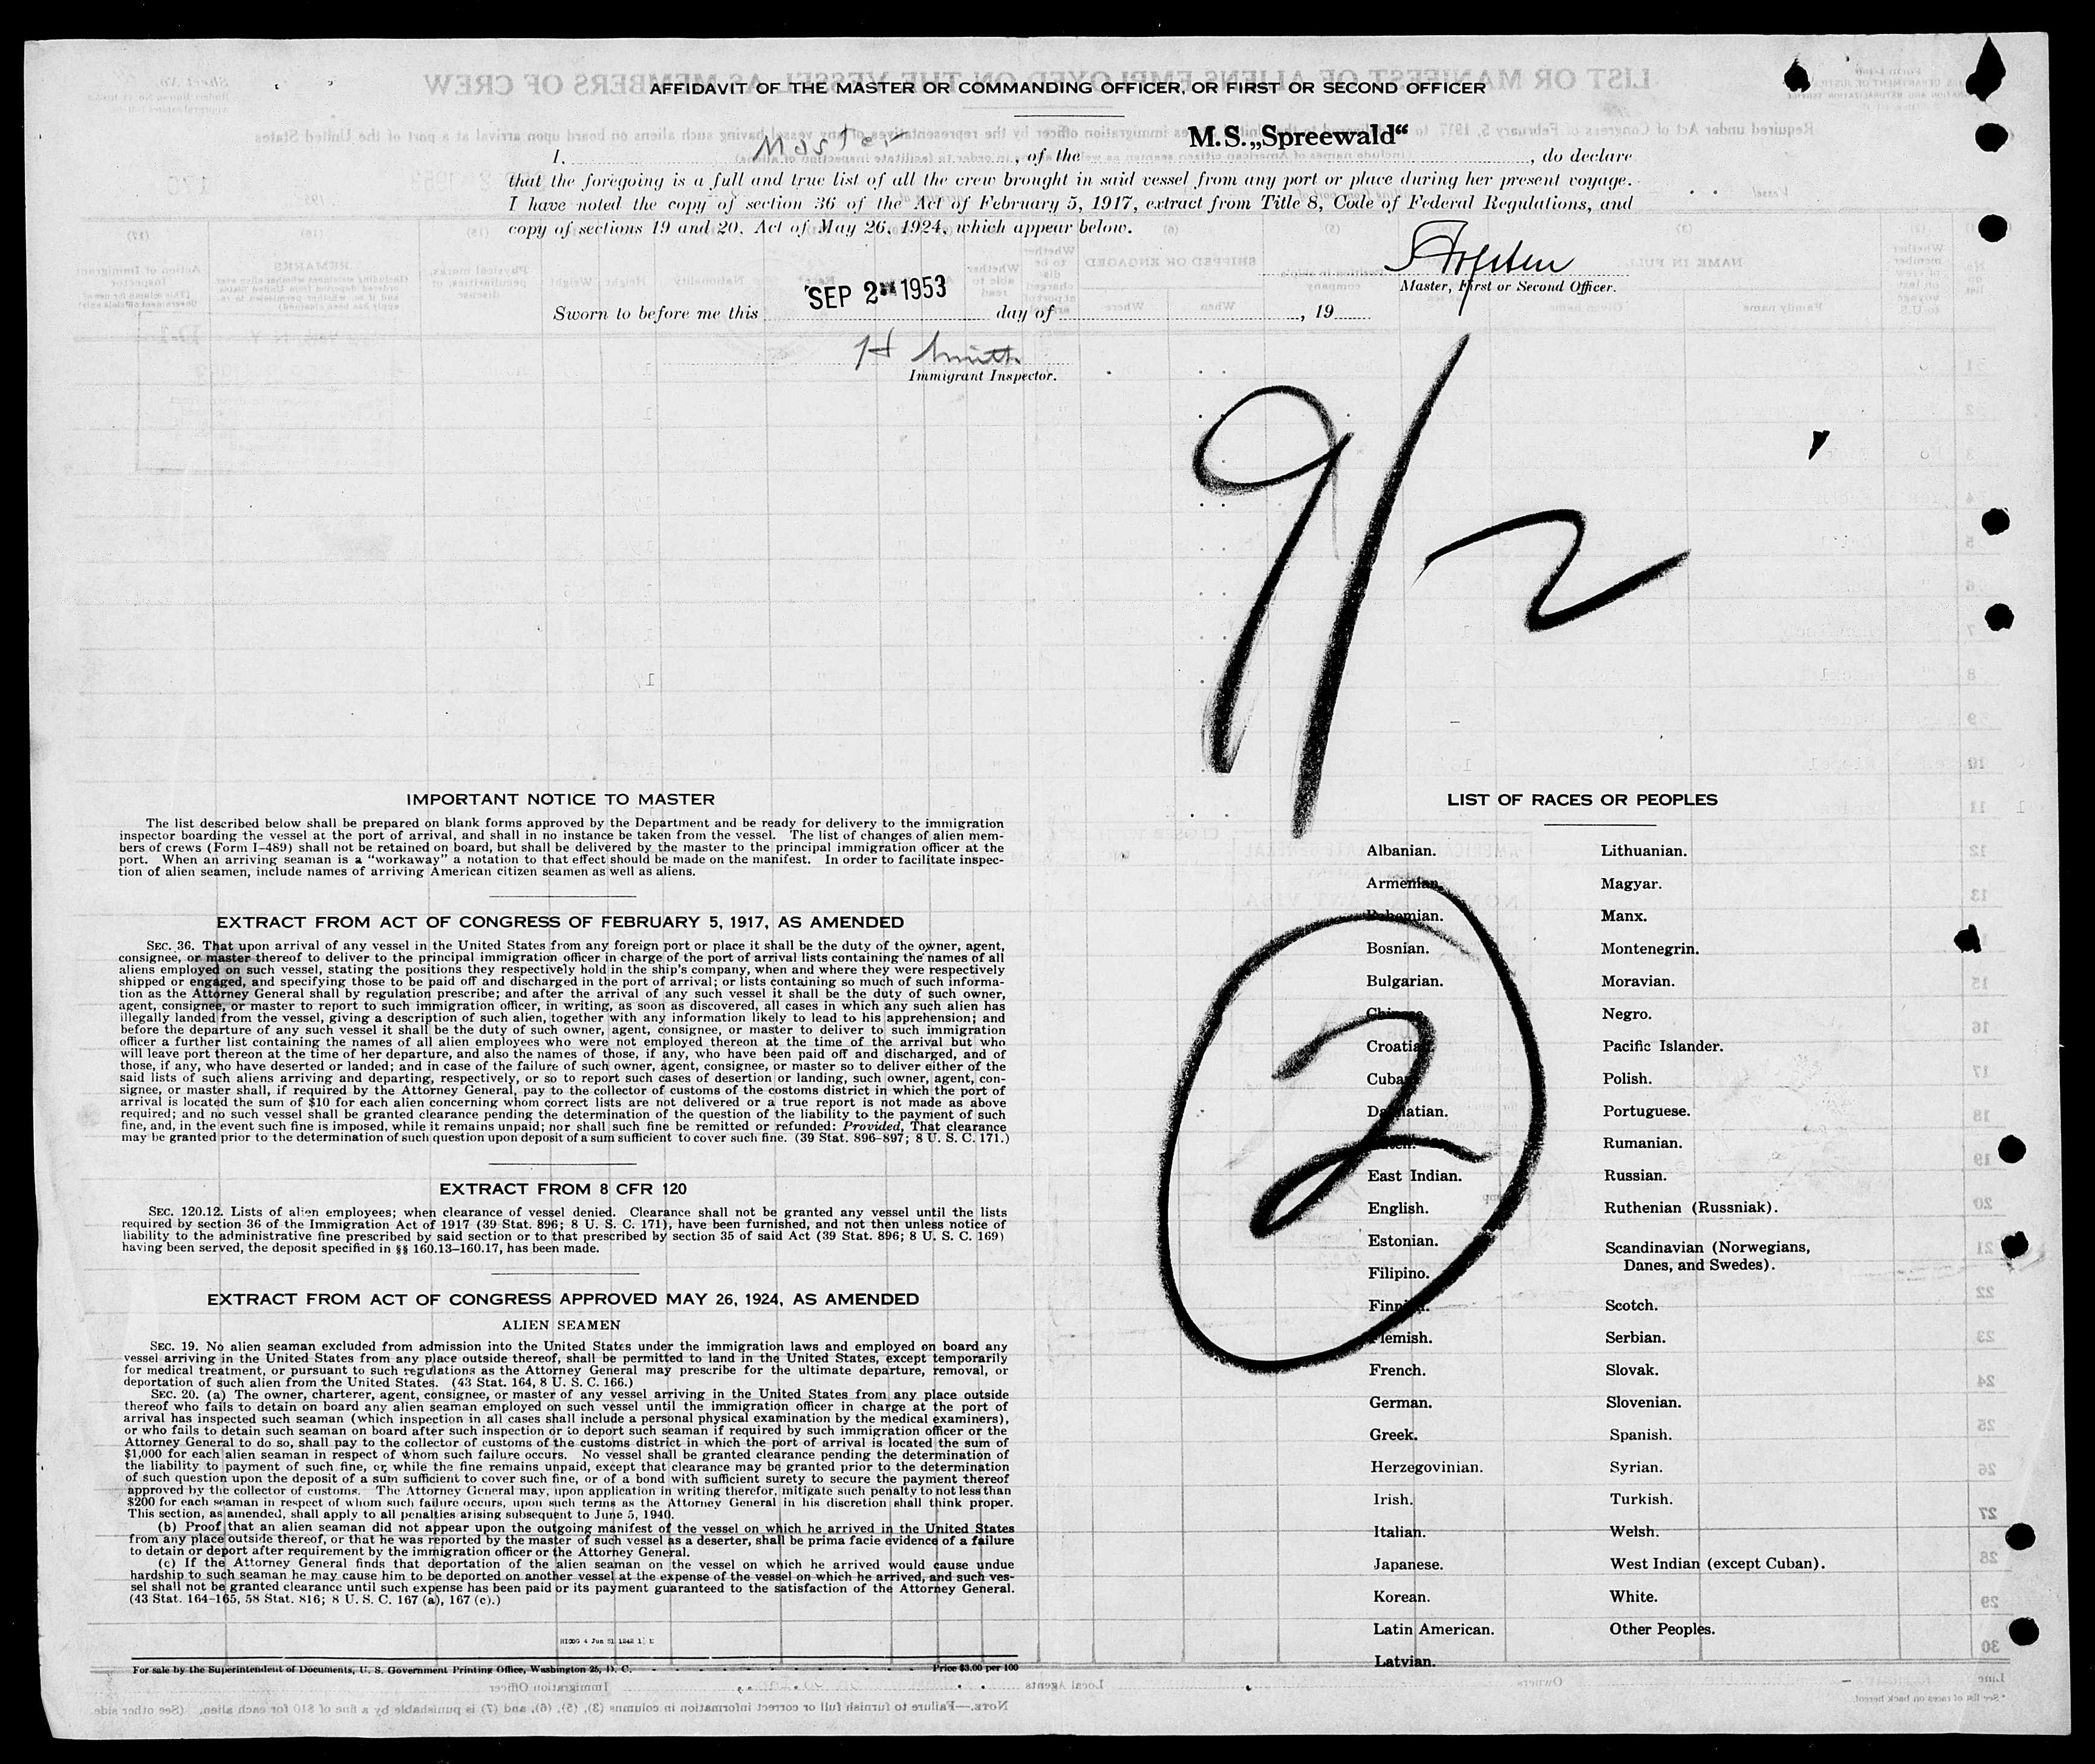 AFFIDAVIT OF THE MASTER OR COMMANDING OFFICER, OR FIRST OR SECOND OFFICER
I, Master, of the M.S. „Spreewald“, do declare
that the foregoing is a full and true list of all the crew brought in said vessel from any port or place during her present voyage.
I have noted the copy of section 36 of the Act of February 5, 1917, extract from Title 8, Code of Federal Regulations, and
copy of sections 19 and 20, Act of May 26, 1924, which appear below.
Master, First or Second Officer.
Sworn to before me this SEP 2 1953 day of , 19
H Smith
Immigrant Inspector.
9/2
IMPORTANT NOTICE TO MASTER
The list described below shall be prepared on blank forms approved by the Department and be ready for delivery to the immigration
inspector boarding the vessel at the port of arrival, and shall in no instance be taken from the vessel. The list of changes of alien mem-
bers of crews (Form I-489) shall not be retained on board, but shall be delivered by the master to the principal immigration officer at the
port. When an arriving seaman is a "workaway" a notation to that effect should be made on the manifest. In order to facilitate inspec-
tion of alien seamen, include names of arriving American citizen seamen as well as aliens.
EXTRACT FROM ACT OF CONGRESS OF FEBRUARY 5, 1917, AS AMENDED
SEC. 36. That upon arrival of any vessel in the United States from any foreign port or place it shall be the duty of the owner, agent,
consignee, or master thereof to deliver to the principal immigration officer in charge of the port of arrival lists containing the names of all
aliens employed on such vessel, stating the positions they respectively hold in the ship's company, when and where they were respectively
shipped or engaged, and specifying those to be paid off and discharged in the port of arrival; or lists containing so much of such informa-
tion as the Attorney General shall by regulation prescribe; and after the arrival of any such vessel it shall be the duty of such owner,
agent, consignee, or master to report to such immigration officer, in writing, as soon as discovered, all cases in which any such alien has
illegally landed from the vessel, giving a description of such alien, together with any information likely to lead to his apprehension; and
before the departure of any such vessel it shall be the duty of such owner, agent, consignee, or master to deliver to such immigration
officer a further list containing the names of all alien employees who were not employed thereon at the time of the arrival but who
will leave port thereon at the time of her departure, and also the names of those, if any, who have been paid off and discharged, and of
those, if any, who have deserted or landed; and in case of the failure of such owner, agent, consignee, or master so to deliver either of the
said lists of such aliens arriving and departing, respectively, or so to report such cases of desertion or landing, such owner, agent, con-
signee, or master shall, if required by the Attorney General, pay to the collector of customs of the customs district in which the port of
arrival is located the sum of $10 for each alien concerning whom correct lists are not delivered or a true report is not made as above
required; and no such vessel shall be granted clearance pending the determination of the question of the liability to the payment of such
fine, and, in the event such fine is imposed, while it remains unpaid; nor shall such fine be remitted or refunded: Provided, That clearance
may be granted prior to the determination of such question upon deposit of a sum sufficient to cover such fine. (39 Stat. 896-897; 8 U. S. C. 171.)
EXTRACT FROM 8 CFR 120
SEC. 120.12. Lists of alien employees; when clearance of vessel denied. Clearance shall not be granted any vessel until the lists
required by section 36 of the Immigration Act of 1917 (39 Stat. 896; 8 U. S. C. 171), have been furnished, and not then unless notice of
liability to the administrative fine prescribed by said section or to that prescribed by section 35 of said Act (39 Stat. 896; 8 U. S. C. 169)
having been served, the deposit specified in §§ 160.13-160.17, has been made.
EXTRACT FROM ACT OF CONGRESS APPROVED MAY 26, 1924, AS AMENDED
ALIEN SEAMEN
SEC. 19. No alien seaman excluded from admission into the United States under the immigration laws and employed on board any
vessel arriving in the United States from any place outside thereof, shall be permitted to land in the United States, except temporarily
for medical treatment, or pursuant to such regulations as the Attorney General may prescribe for the ultimate departure, removal, or
deportation of such alien from the United States. (43 Stat. 164, 8 U. S. C. 166.)
SEC. 20. (a) The owner, charterer, agent, consignee, or master of any vessel arriving in the United States from any place outside
thereof who fails to detain on board any alien seaman employed on such vessel until the immigration officer in charge at the port of
arrival has inspected such seaman (which inspection in all cases shall include a personal physical examination by the medical examiners),
or who fails to detain such seaman on board after such inspection or to deport such seaman if required by such immigration officer or the
Attorney General to do so, shall pay to the collector of customs of the customs district in which the port of arrival is located the sum of
$1,000 for each alien seaman in respect of whom such failure occurs. No vessel shall be granted clearance pending the determination of
the liability to payment of such fine, or, while the fine remains unpaid, except that clearance may be granted prior to the determination
of such question upon the deposit of a sum sufficient to cover such fine, or of a bond with sufficient surety to secure the payment thereof
approved by the collector of customs. The Attorney General may, upon application in writing therefor, mitigate such penalty to not less than
$200 for each seaman in respect of whom such failure occurs, upon such terms as the Attorney General in his discretion shall think proper.
This section, as amended, shall apply to all penalties arising subsequent to June 5, 1940.
(b) Proof that an alien seaman did not appear upon the outgoing manifest of the vessel on which he arrived in the United States
from any place outside thereof, or that he was reported by the master of such vessel as a deserter, shall be prima facie evidence of a failure
to detain or deport after requirement by the immigration officer or the Attorney General.
(c) If the Attorney General finds that deportation of the alien seaman on the vessel on which he arrived would cause undue
hardship to such seaman he may cause him to be deported on another vessel at the expense of the vessel on which he arrived, and such ves-
sel shall not be granted clearance until such expense has been paid or its payment guaranteed to the satisfaction of the Attorney General.
(43 Stat. 164-165, 58 Stat. 816; 8 U. S. C. 167 (a), 167 (c).)
For sale by the Superintendent of Documents, U. S. Government Printing Office, Washington 25, D. C. - Price $3.00 per 100
LIST OF RACES OR PEOPLES
Albanian.
Armenian.
Bohemian.
Bosnian.
Bulgarian.
Chinese.
Croatian.
Cuban.
Dalmatian.
East Indian.
English.
Estonian.
Filipino.
Finnish.
Flemish.
French.
German.
Greek.
Herzegovinian.
Irish.
Italian.
Japanese.
Korean.
Latin American.
Latvian.
2
Lithuanian.
Magyar.
Manx.
Montenegrin.
Moravian.
Negro.
Pacific Islander.
Polish.
Portuguese.
Rumanian.
Russian.
Ruthenian (Russniak).
Scandinavian (Norwegians,
Danes, and Swedes).
Scotch.
Serbian.
Slovak.
Slovenian.
Spanish.
Syrian.
Turkish.
Welsh.
West Indian (except Cuban).
White.
Other Peoples.